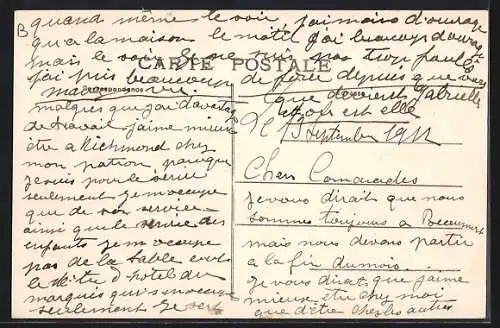 B quand même le soir j'aimais d'ouvrage
qu'a la maison le matin j'ai beaucoup d'ouvrage
mais le soir je ne suis pas trop
j'ai puis beaucoup de depuis que vous
CARTE POSTALE
Gabrielle
est elle
malgres que j'ai davantage
de travail j'aime mieux
être a Richmond chez
mon patron parceque
je suis pour le service
seulement je m'occupe
que de son service
ainsi que le service des
enfants je m occupe
pas de la table c'est
le Mtre d'hotel du
marquis qui s'occupe
seulement je sers
Le 13 September 1911
Chers Camarades
je vous dirait que nous
sommes toujours a
mais nous devons partir
a la fin du mois
je vous dirait que j'aime
mieux être chez moi
que d'être chez les autres